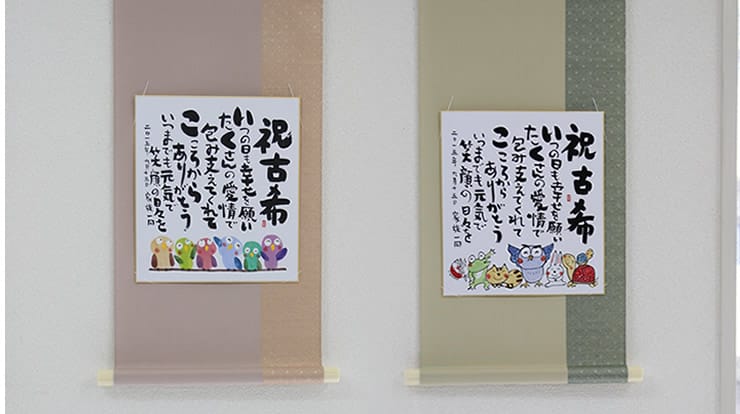 祝古希
いつの日も幸せを願い
たくさんの愛情で
包み支えてくれて
こころから
ありがとう
いつまでも元気で
笑顔の日々を
二〇一五年、九月十五日 家族一同
祝古希
いつの日も幸せを願い
たくさんの愛情で
包み支えてくれて
こころから
ありがとう
いつまでも元気で
笑顔の日々を
二〇一五年、九月十五日 家族一同